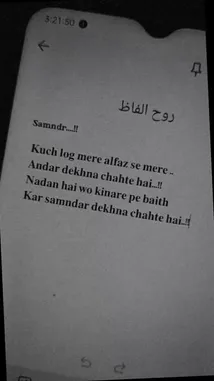 3:21:50
روح الفاظ
Samndr...!!
Kuch log mere alfaz se mere ..
Andar dekhna chahte hai..!!
Nadan hai wo kinare pe baith
Kar samndar dekhna chahte hai..!!